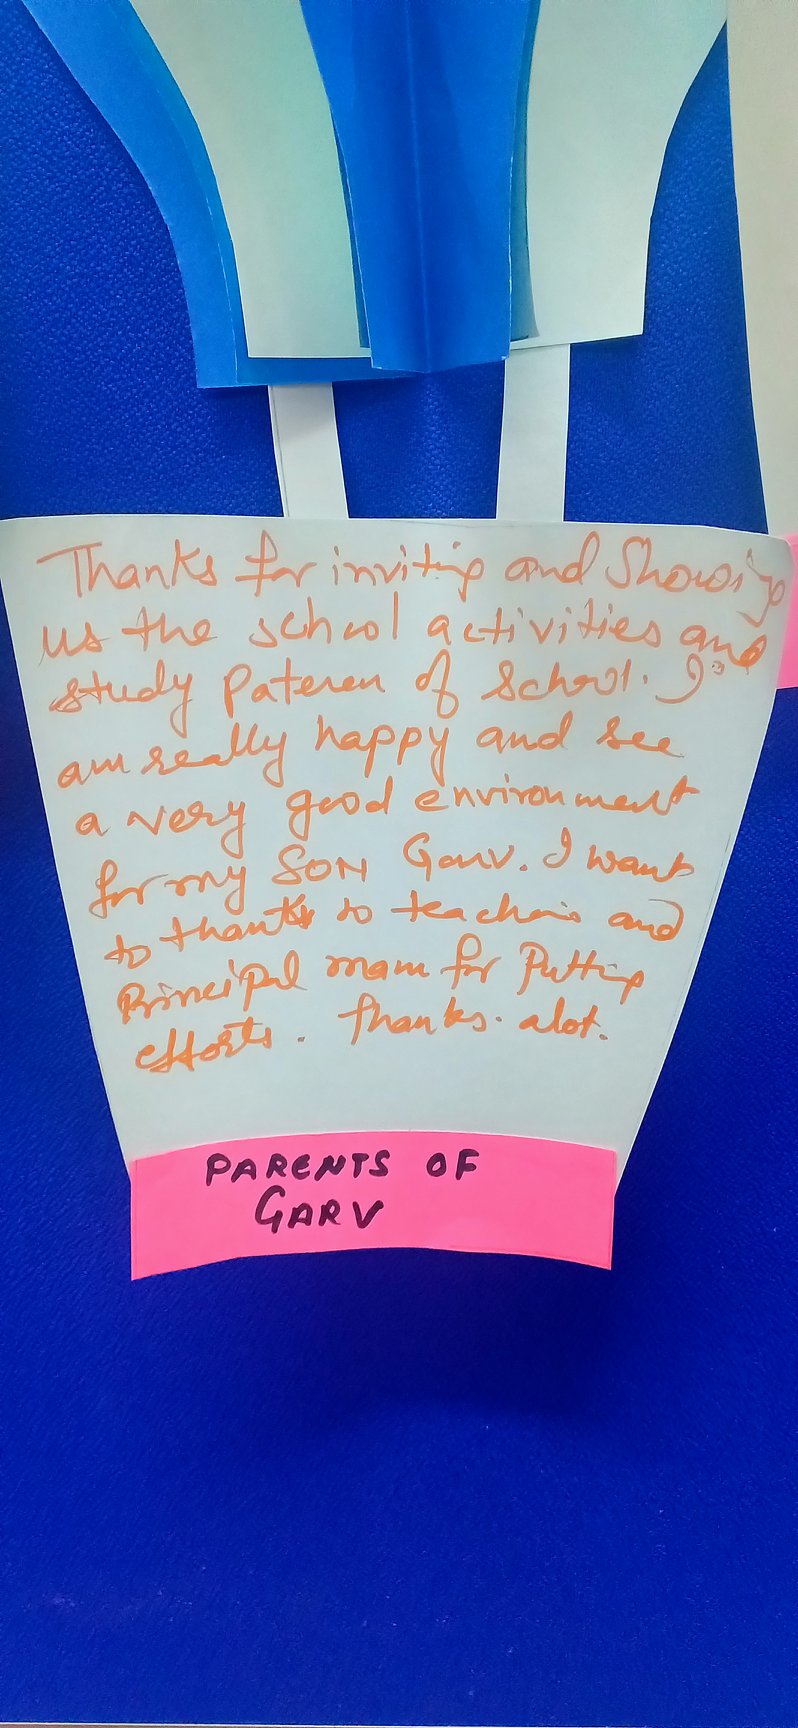 Thanks for inviting and Showing
us the school activities and
study Pateren of School. I
am really happy and see
a very good environment
for my SON Garv. I want
to thanks to teachers and
Principal mam for Putting
efforts. Thanks. alot.
PARENTS OF
GARV